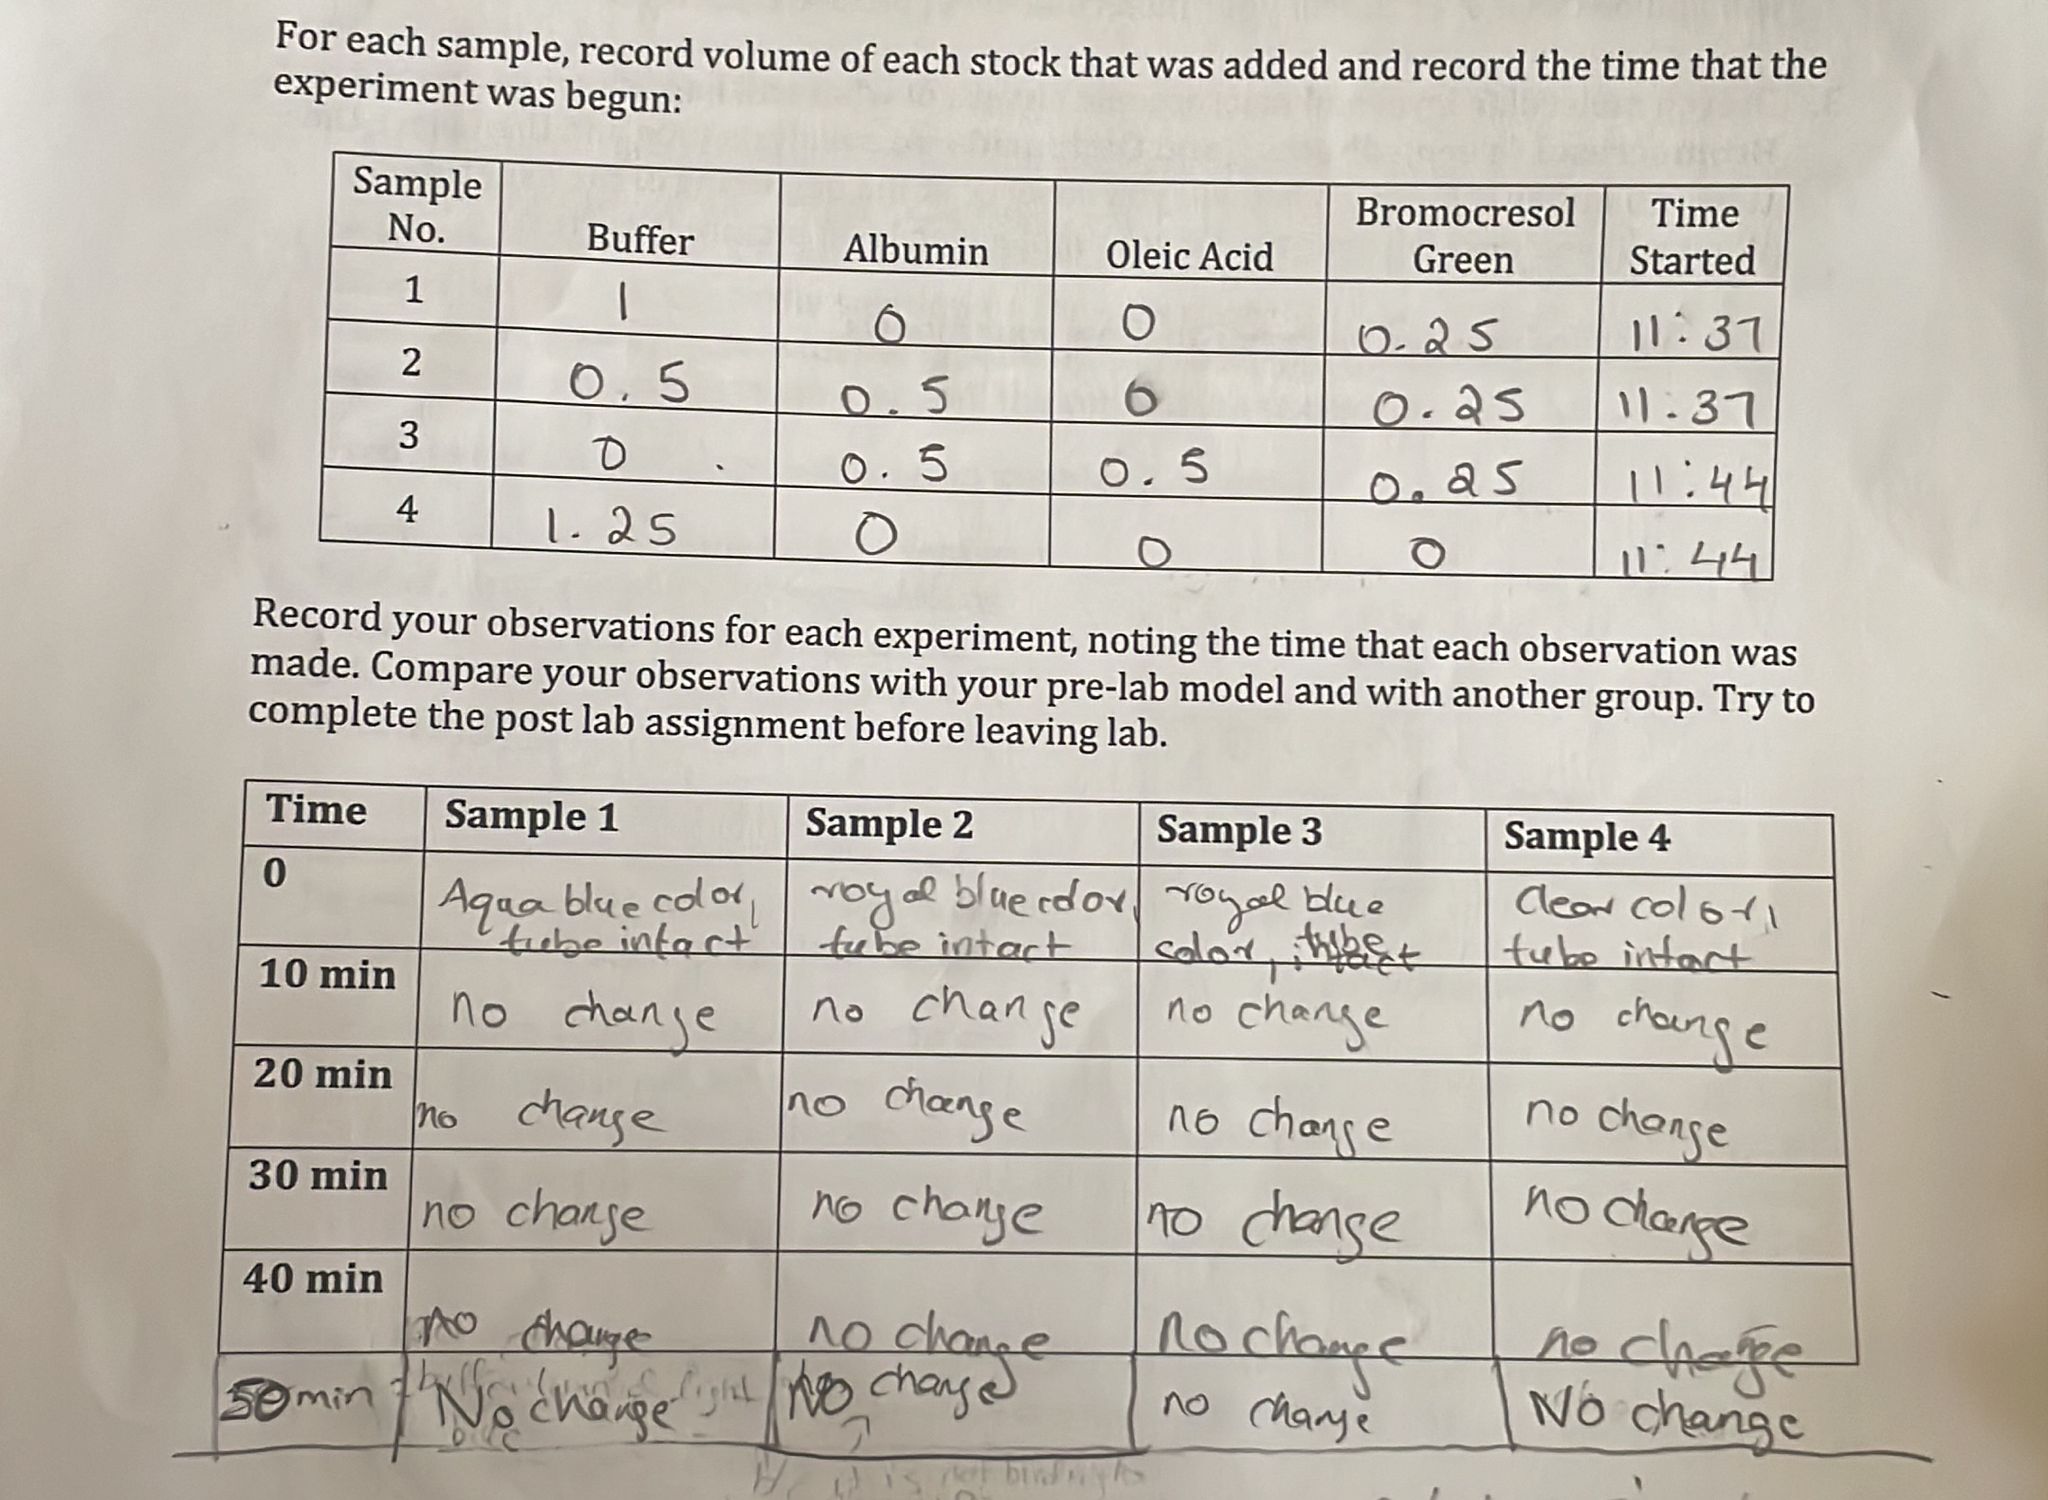 For each sample, record volume of each stock that was added and record the time that the
experiment was begun:
Sample No. Buffer Albumin Oleic Acid Bromocresol Green Time Started
1 1 0 0 0.25 11:37
2 0.5 0.5 0 0.25 11:37
3 0 0.5 0.5 0.25 11:44
4 1.25 0 0 0 11:44
Record your observations for each experiment, noting the time that each observation was
made. Compare your observations with your pre-lab model and with another group. Try to
complete the post lab assignment before leaving lab.
Time Sample 1 Sample 2 Sample 3 Sample 4
0 Aqua blue color, tube intact royal blue color, tube intact royal blue color, tube intact clear color, tube intact
10 min no change no change no change no change
20 min no change no change no change no change
30 min no change no change no change no change
40 min no change no change no change no change
50 min No change No change no change No change
it is not binding to